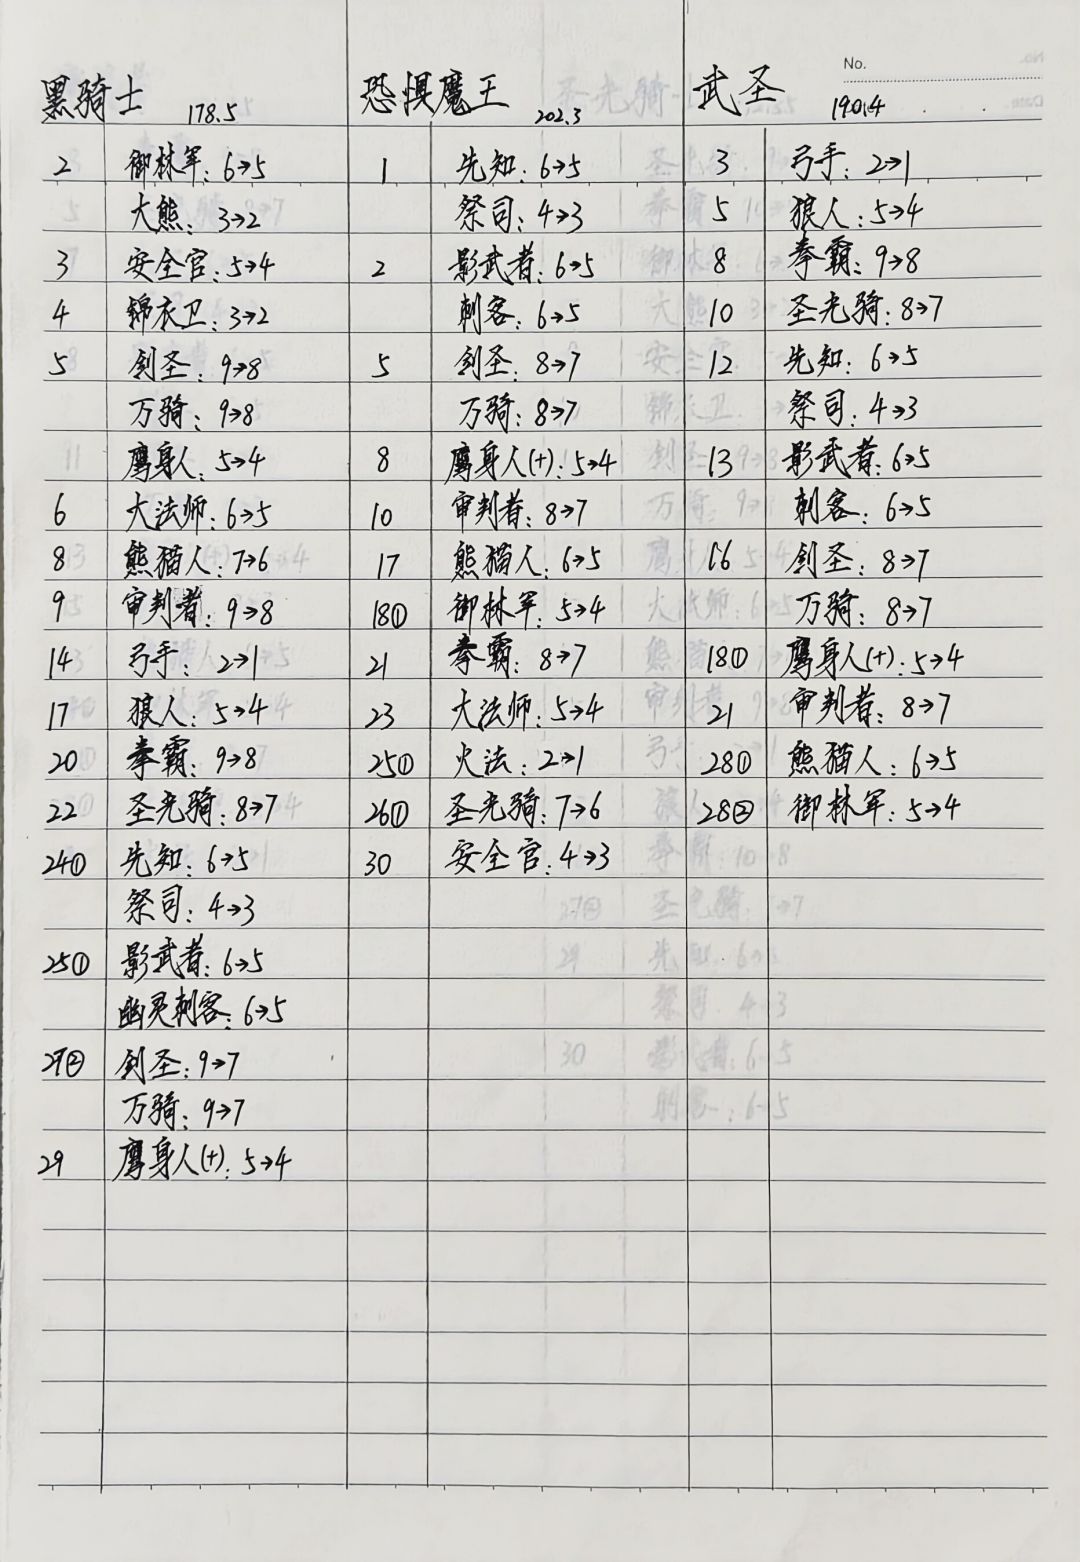 No.
黑骑士 178.5 恐惧魔王 202.3 武圣 190.4
2 御林军: 6→5 1 先知: 6→5 3 弓手: 2→1
大熊: 3→2 祭司: 4→3 5 狼人: 5→4
3 安全官: 5→4 2 影武者: 6→5 8 拳霸: 9→8
4 锦衣卫: 3→2 刺客: 6→5 10 圣光骑: 8→7
5 剑圣: 9→8 5 剑圣: 8→7 12 先知: 6→5
万骑: 9→8 万骑: 8→7 祭司: 4→3
鹰身人: 5→4 8 鹰身人(+): 5→4 13 影武者: 6→5
6 大法师: 6→5 10 审判者: 8→7 刺客: 6→5
8 熊猫人: 7→6 17 熊猫人: 6→5 16 剑圣: 8→7
9 审判者: 9→8 18① 御林军: 5→4 万骑: 8→7
14 弓手: 2→1 21 拳霸: 8→7 18① 鹰身人(+): 5→4
17 狼人: 5→4 23 大法师: 5→4 21 审判者: 8→7
20 拳霸: 9→8 25① 火法: 2→1 28① 熊猫人: 6→5
22 圣光骑: 8→7 26① 圣光骑: 7→6 28② 御林军: 5→4
24① 先知: 6→5 30 安全官: 4→3
祭司: 4→3
25① 影武者: 6→5
幽灵刺客: 6→5
27② 剑圣: 9→7
万骑: 9→7
29 鹰身人(+): 5→4